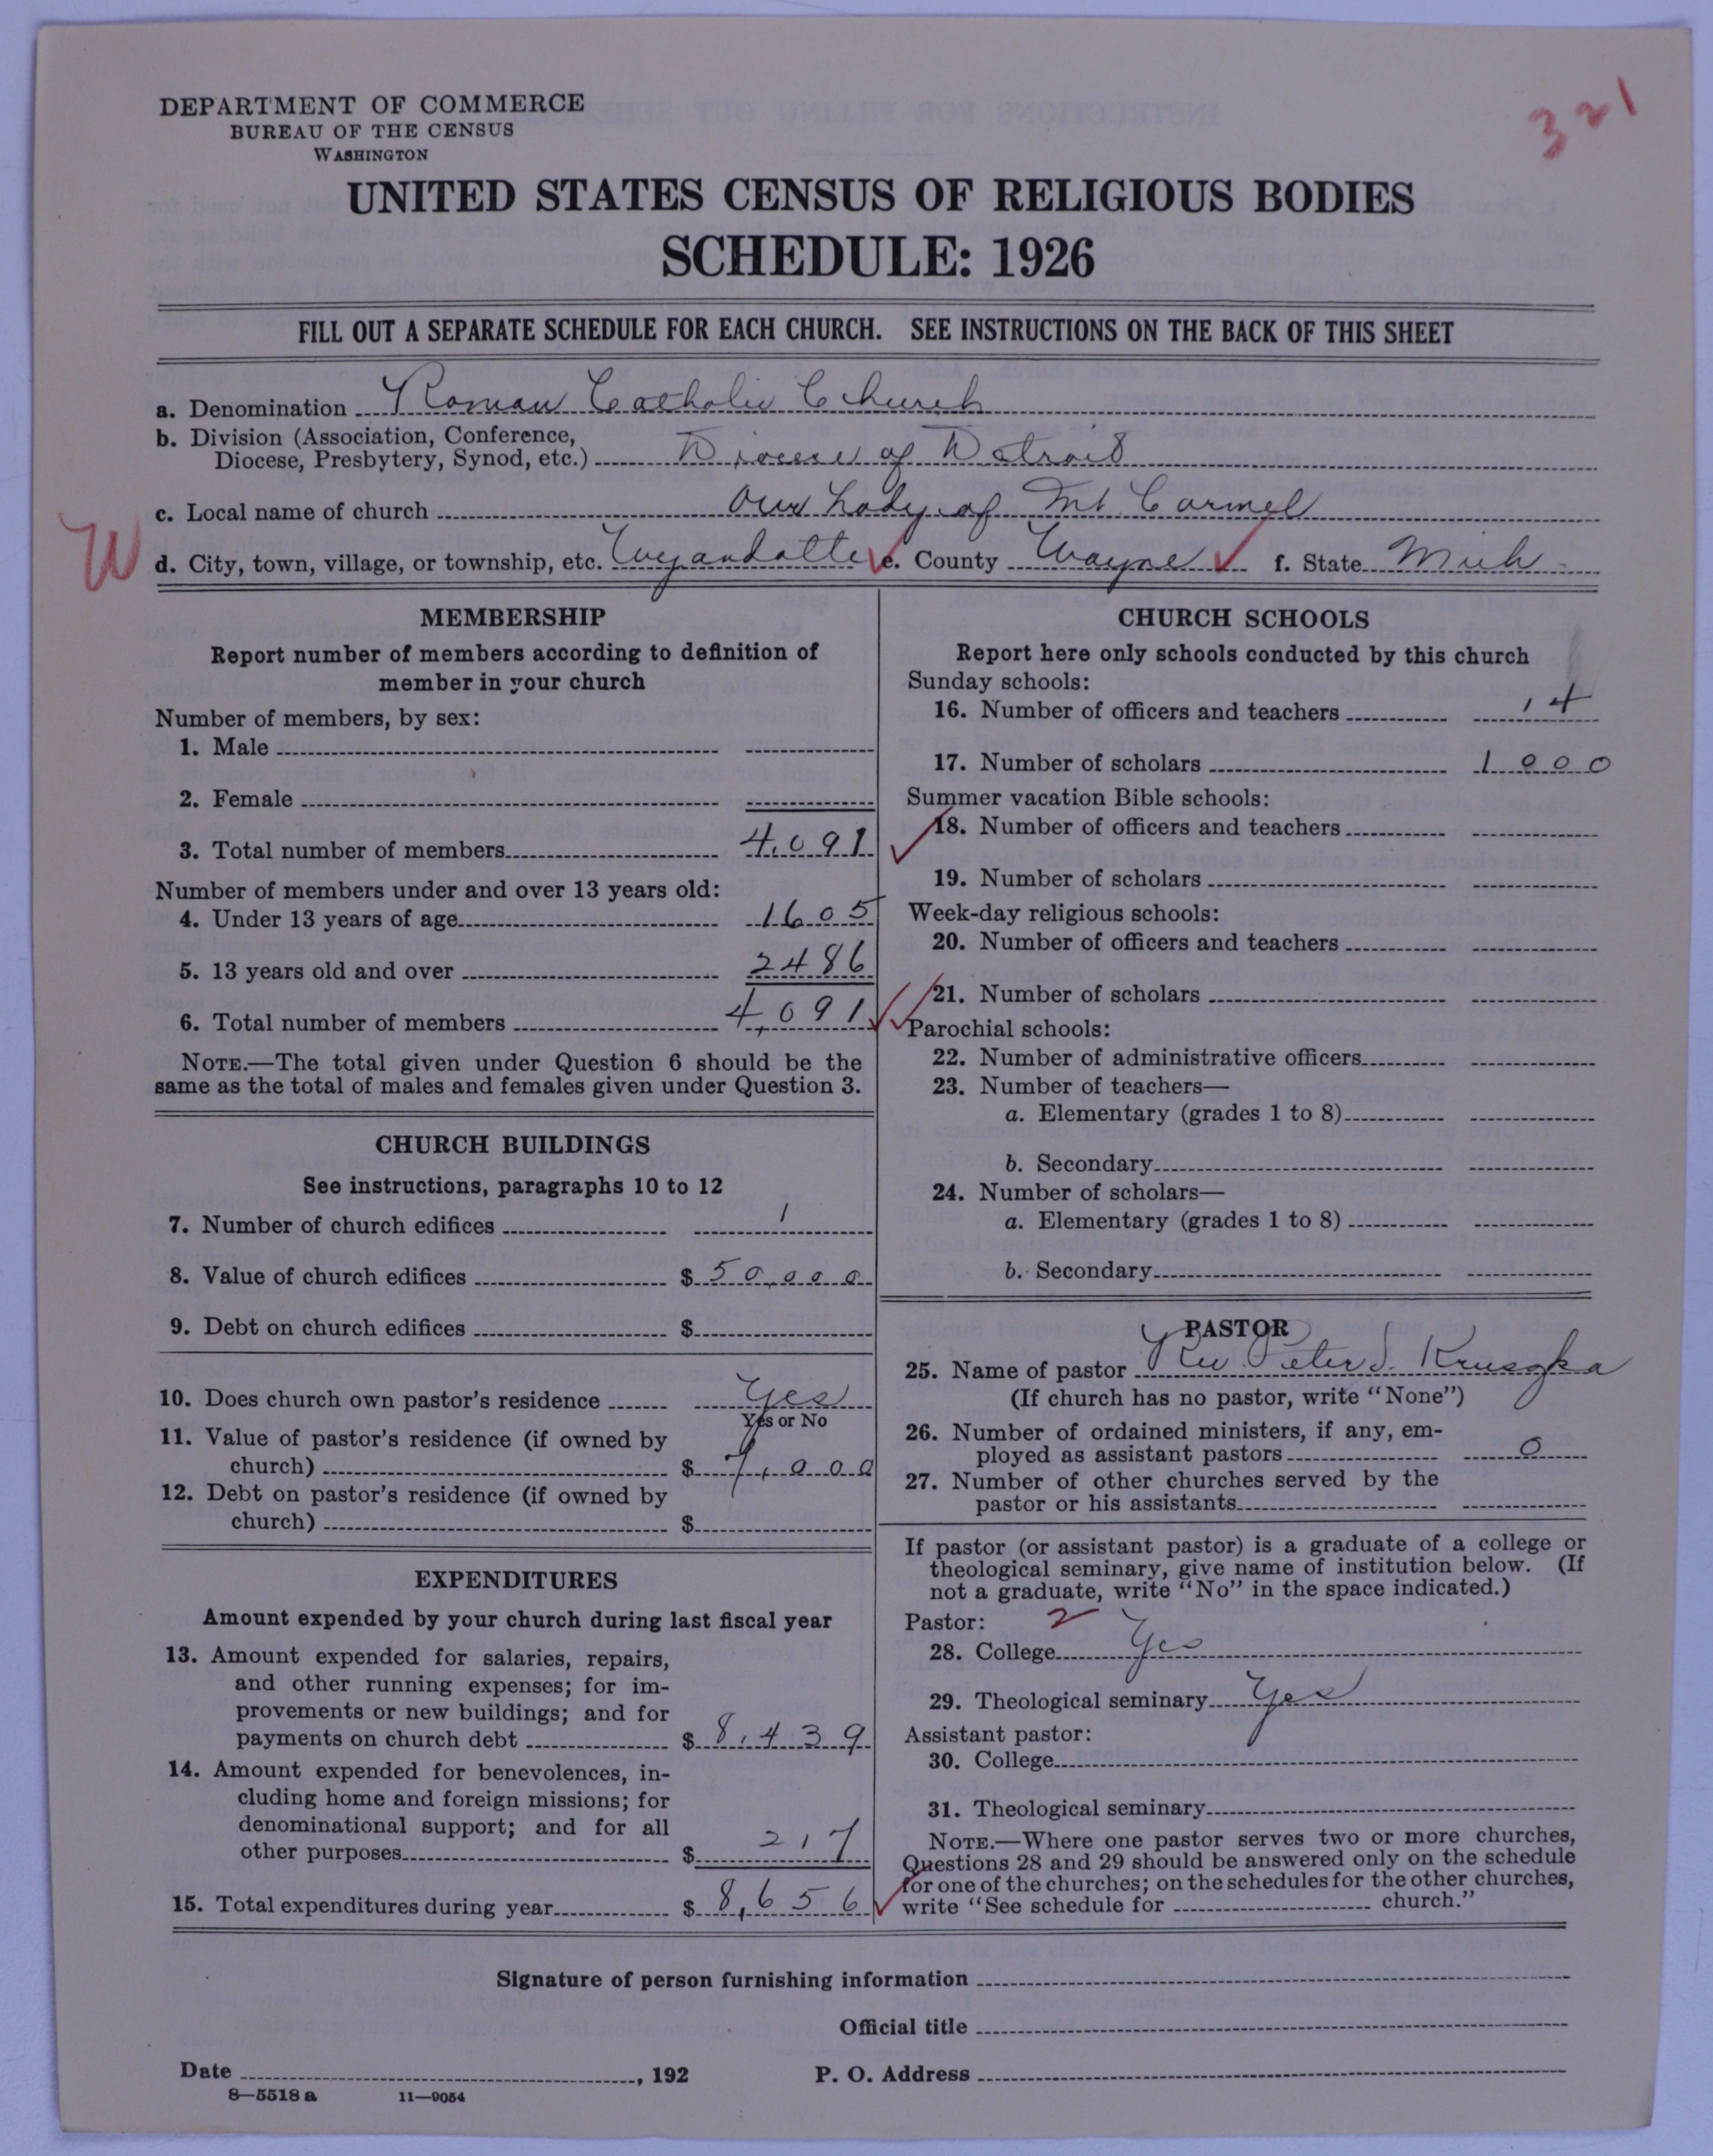 321
DEPARTMENT OF COMMERCE
BUREAU OF THE CENSUS
WASHINGTON
UNITED STATES CENSUS OF RELIGIOUS BODIES
SCHEDULE: 1926
FILL OUT A SEPARATE SCHEDULE FOR EACH CHURCH. SEE INSTRUCTIONS ON THE BACK OF THIS SHEET
a. Denomination Roman Catholic Church
b. Division (Association, Conference,
Diocese, Presbytery, Synod, etc.) Diocese of Detroit
c. Local name of church Our Lady of Mt. Carmel
W
d. City, town, village, or township, etc. Wyandotte e. County Wayne f. State Mich
MEMBERSHIP
Report number of members according to definition of
member in your church
Number of members, by sex:
1. Male
2. Female
3. Total number of members 4,091
Number of members under and over 13 years old:
4. Under 13 years of age 1605
5. 13 years old and over 2486
6. Total number of members 4,091
NOTE.—The total given under Question 6 should be the
same as the total of males and females given under Question 3.
CHURCH BUILDINGS
See instructions, paragraphs 10 to 12
7. Number of church edifices 1
8. Value of church edifices $ 50,000
9. Debt on church edifices $
10. Does church own pastor's residence Yes
Yes or No
11. Value of pastor's residence (if owned by
church) $ 7,000
12. Debt on pastor's residence (if owned by
church) $
EXPENDITURES
Amount expended by your church during last fiscal year
13. Amount expended for salaries, repairs,
and other running expenses; for im-
provements or new buildings; and for
payments on church debt $ 8,439
14. Amount expended for benevolences, in-
cluding home and foreign missions; for
denominational support; and for all
other purposes $ 217
15. Total expenditures during year $ 8,656
CHURCH SCHOOLS
Report here only schools conducted by this church
Sunday schools:
16. Number of officers and teachers 14
17. Number of scholars 1000
Summer vacation Bible schools:
18. Number of officers and teachers
19. Number of scholars
Week-day religious schools:
20. Number of officers and teachers
21. Number of scholars
Parochial schools:
22. Number of administrative officers
23. Number of teachers—
a. Elementary (grades 1 to 8)
b. Secondary
24. Number of scholars—
a. Elementary (grades 1 to 8)
b. Secondary
PASTOR
25. Name of pastor Rev. Peter
(If church has no pastor, write "None")
26. Number of ordained ministers, if any, em-
ployed as assistant pastors 0
27. Number of other churches served by the
pastor or his assistants
If pastor (or assistant pastor) is a graduate of a college or
theological seminary, give name of institution below. (If
not a graduate, write "No" in the space indicated.)
Pastor: 2
28. College Yes
29. Theological seminary Yes
Assistant pastor:
30. College
31. Theological seminary
NOTE.—Where one pastor serves two or more churches,
Questions 28 and 29 should be answered only on the schedule
for one of the churches; on the schedules for the other churches,
write "See schedule for church."
Signature of person furnishing information
Official title
Date , 192 P. O. Address
8—5518 a 11—9054